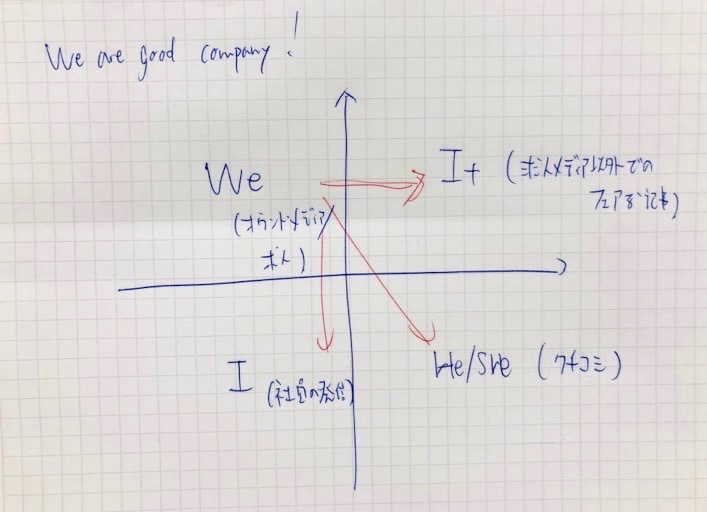 We are good company!
We
(オウンドメディア
求人)
It (求人メディアエスタトでの
フェアな記事)
I (社員の発信)
He/She (クチコミ)